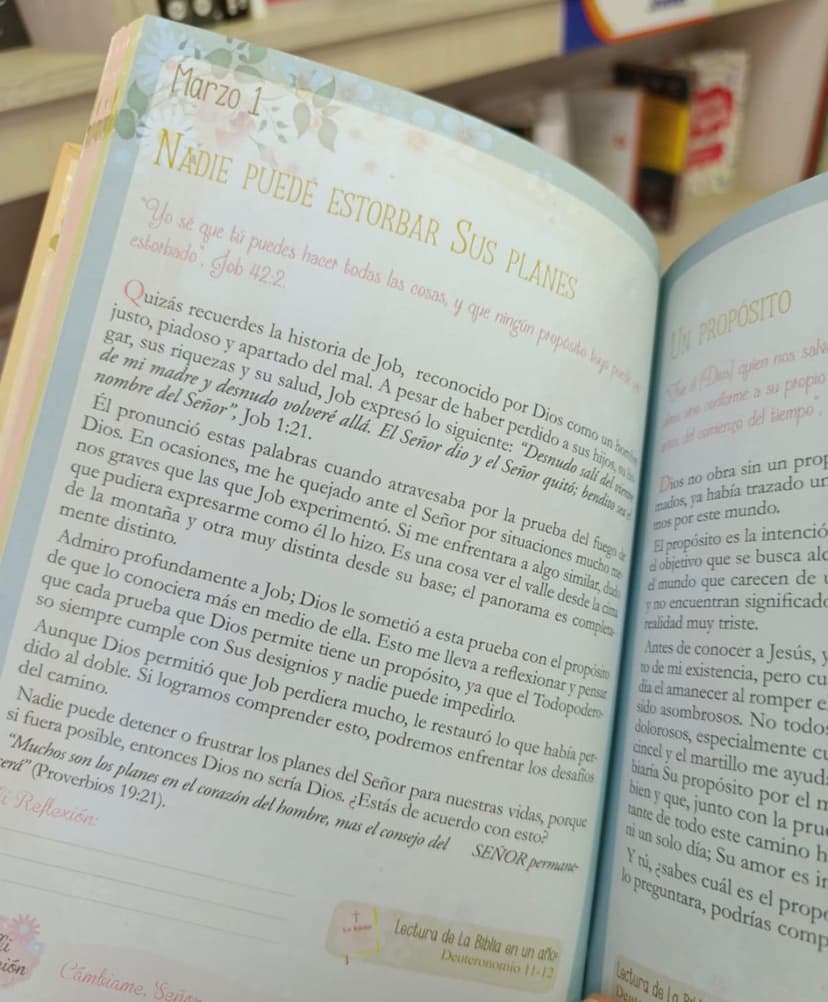 Marzo 1
NADIE PUEDE ESTORBAR SUS PLANES
"Yo sé que tú puedes hacer todas las cosas, y que ningún propósito tuyo puede ser
estorbado", Job 42:2.
Quizás recuerdes la historia de Job, reconocido por Dios como un hombre
justo, piadoso y apartado del mal. A pesar de haber perdido a sus hijos, su
gar, sus riquezas y su salud, Job expresó lo siguiente: "Desnudo salí del vientre
de mi madre y desnudo volveré allá. El Señor dio y el Señor quitó; bendito sea el
nombre del Señor", Job 1:21.
Él pronunció estas palabras cuando atravesaba por la prueba del fuego de
Dios. En ocasiones, me he quejado ante el Señor por situaciones mucho me-
nos graves que las que Job experimentó. Si me enfrentara a algo similar, dudo
que pudiera expresarme como él lo hizo. Es una cosa ver el valle desde la cima
de la montaña y otra muy distinta desde su base; el panorama es completa-
mente distinto.
Admiro profundamente a Job; Dios le sometió a esta prueba con el propósito
de que lo conociera más en medio de ella. Esto me lleva a reflexionar y pensar
que cada prueba que Dios permite tiene un propósito, ya que el Todopodero-
so siempre cumple con Sus designios y nadie puede impedirlo.
Aunque Dios permitió que Job perdiera mucho, le restauró lo que había per-
dido al doble. Si logramos comprender esto, podremos enfrentar los desafíos
del camino.
Nadie puede detener o frustrar los planes del Señor para nuestras vidas, porque
si fuera posible, entonces Dios no sería Dios. ¿Estás de acuerdo con esto?
"Muchos son los planes en el corazón del hombre, mas el consejo del SEÑOR permane-
cerá" (Proverbios 19:21).
Mi Reflexión:
La Biblia
Lectura de La Biblia en un año:
Deuteronomio 11-12
Cámbiame, Señor
UN PROPÓSITO
quien nos salv
conforme a su propio
del comienzo del tiempo",
Dios no obra sin un prop
mados, ya había trazado un
mos por este mundo.
El propósito es la intenció
el objetivo que se busca alc
el mundo que carecen de
y no encuentran significado
realidad muy triste.
Antes de conocer a Jesús, y
to de mi existencia, pero cu
día el amanecer al romper e
sido asombrosos. No todo
dolorosos, especialmente cu
cincel y el martillo me ayud
biaría Su propósito por el m
bien y que, junto con la pru
tante de todo este camino h
ni un solo día; Su amor es in
Y tú, ¿sabes cuál es el prop
lo preguntara, podrías comp
Lectura de La B